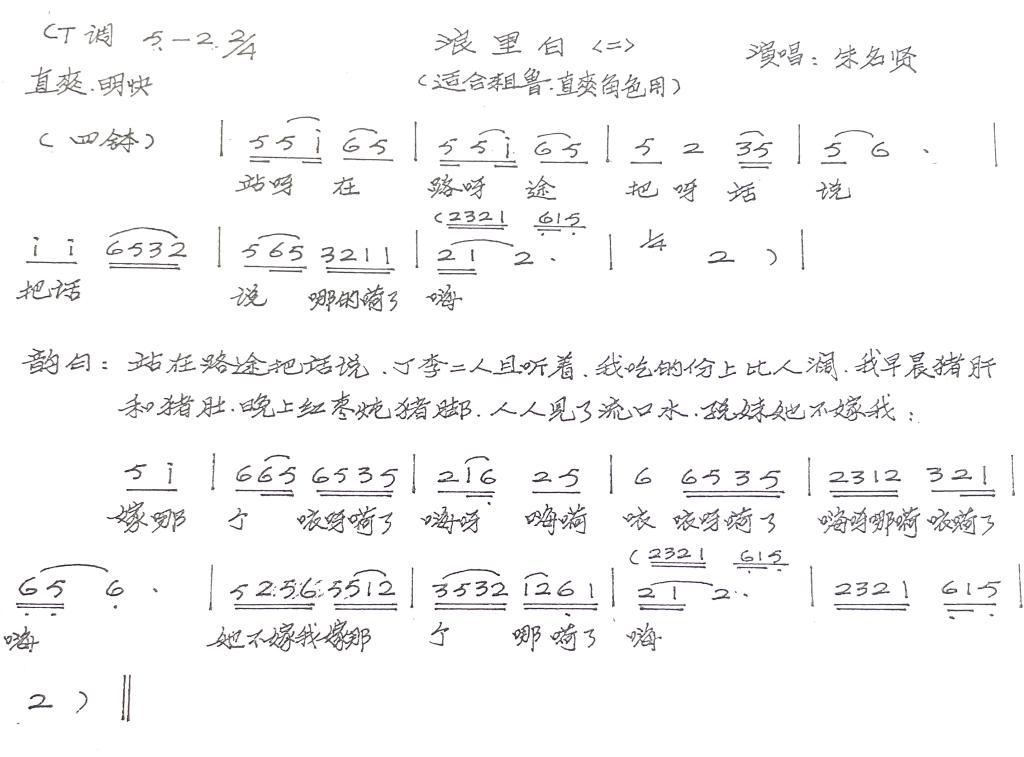 CT调 5—2 2/4 浪里白〈二〉 演唱：朱名贤
直爽.明快 （适合粗鲁.直爽角色用）
（四钵） | 5 5 i 6 5 | 5 5 i 6 5 | 5 2 3 5 | 5 6 . |
站呀 在 路呀 途 把 呀 话 说
（2321 615
i i 6532 | 565 3211 | 21 2. | 1/4 2 ）|
把话 说 哪的嗬了 嗨
韵白：站在路途把话说.丁李二人且听着.我吃的份上比人阔.我早晨猪肝
和猪肚.晚上红枣炖猪脚.人人见了流口水. 妹她不嫁我：
5 i | 665 6535 | 216 25 | 6 6535 | 2312 321 |
嫁哪 个 咴呀嗬了 嗨呀 嗨嗬 咴 咴呀嗬了 嗨呀哪嗬 咴嗬了
（2321 615
65 6 . | 5256 5512 | 3532 1261 | 21 2.. | 2321 615 |
嗨 她不嫁我嫁那 个 哪 嗬了 嗨
2 ）||